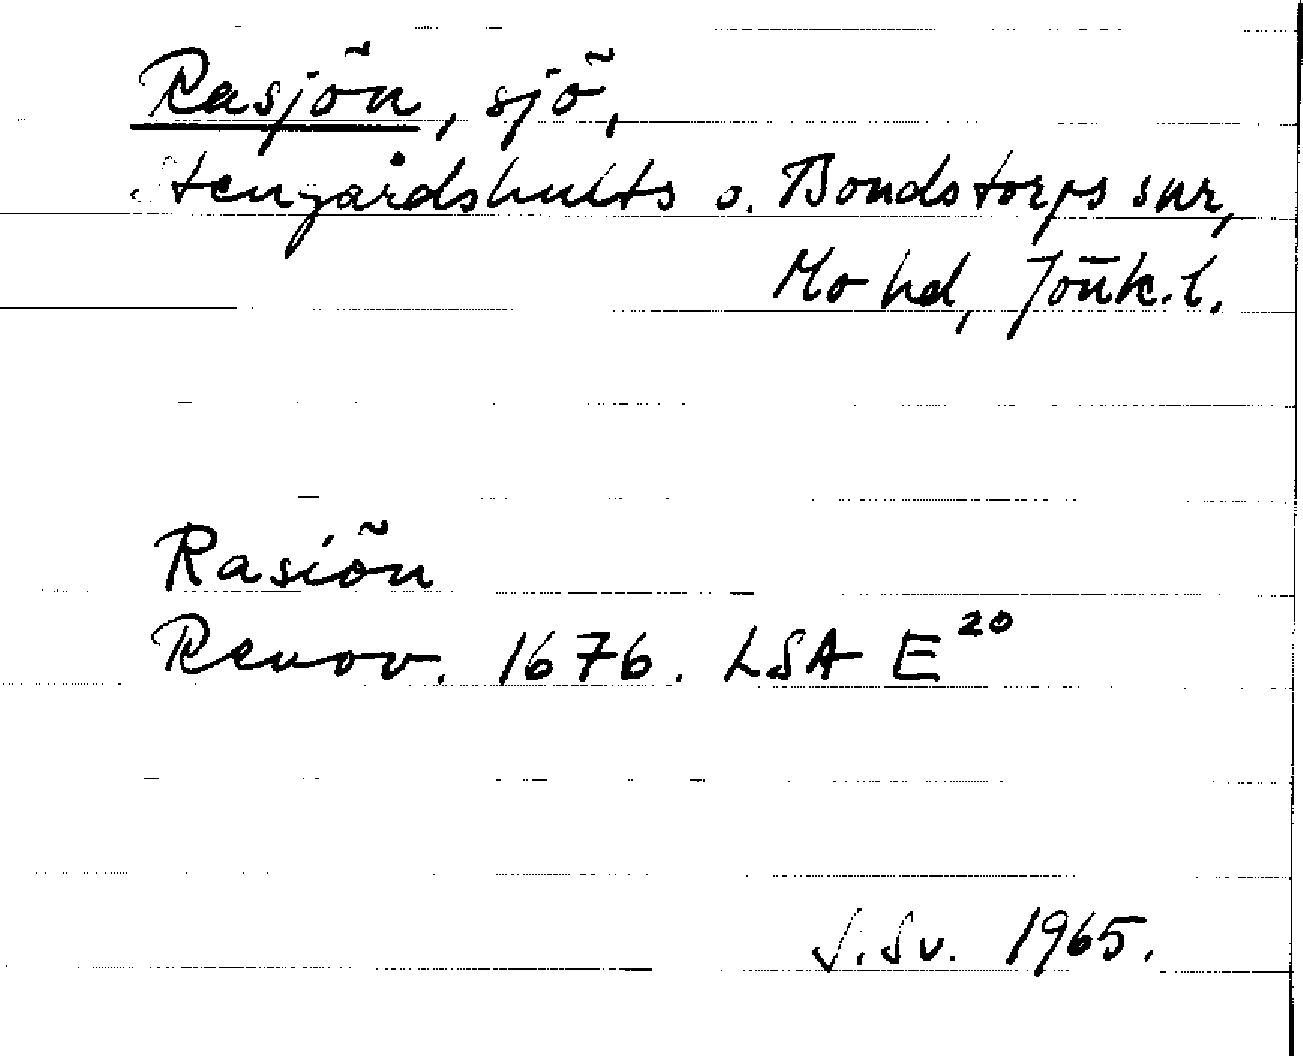 Rasjön, sjö,
Stengårdshults o. Bondstorps snr,
Mo hd, Jönk. l.
Rasiön
Renov. 1676. LSA E 20
S. Sv. 1965.